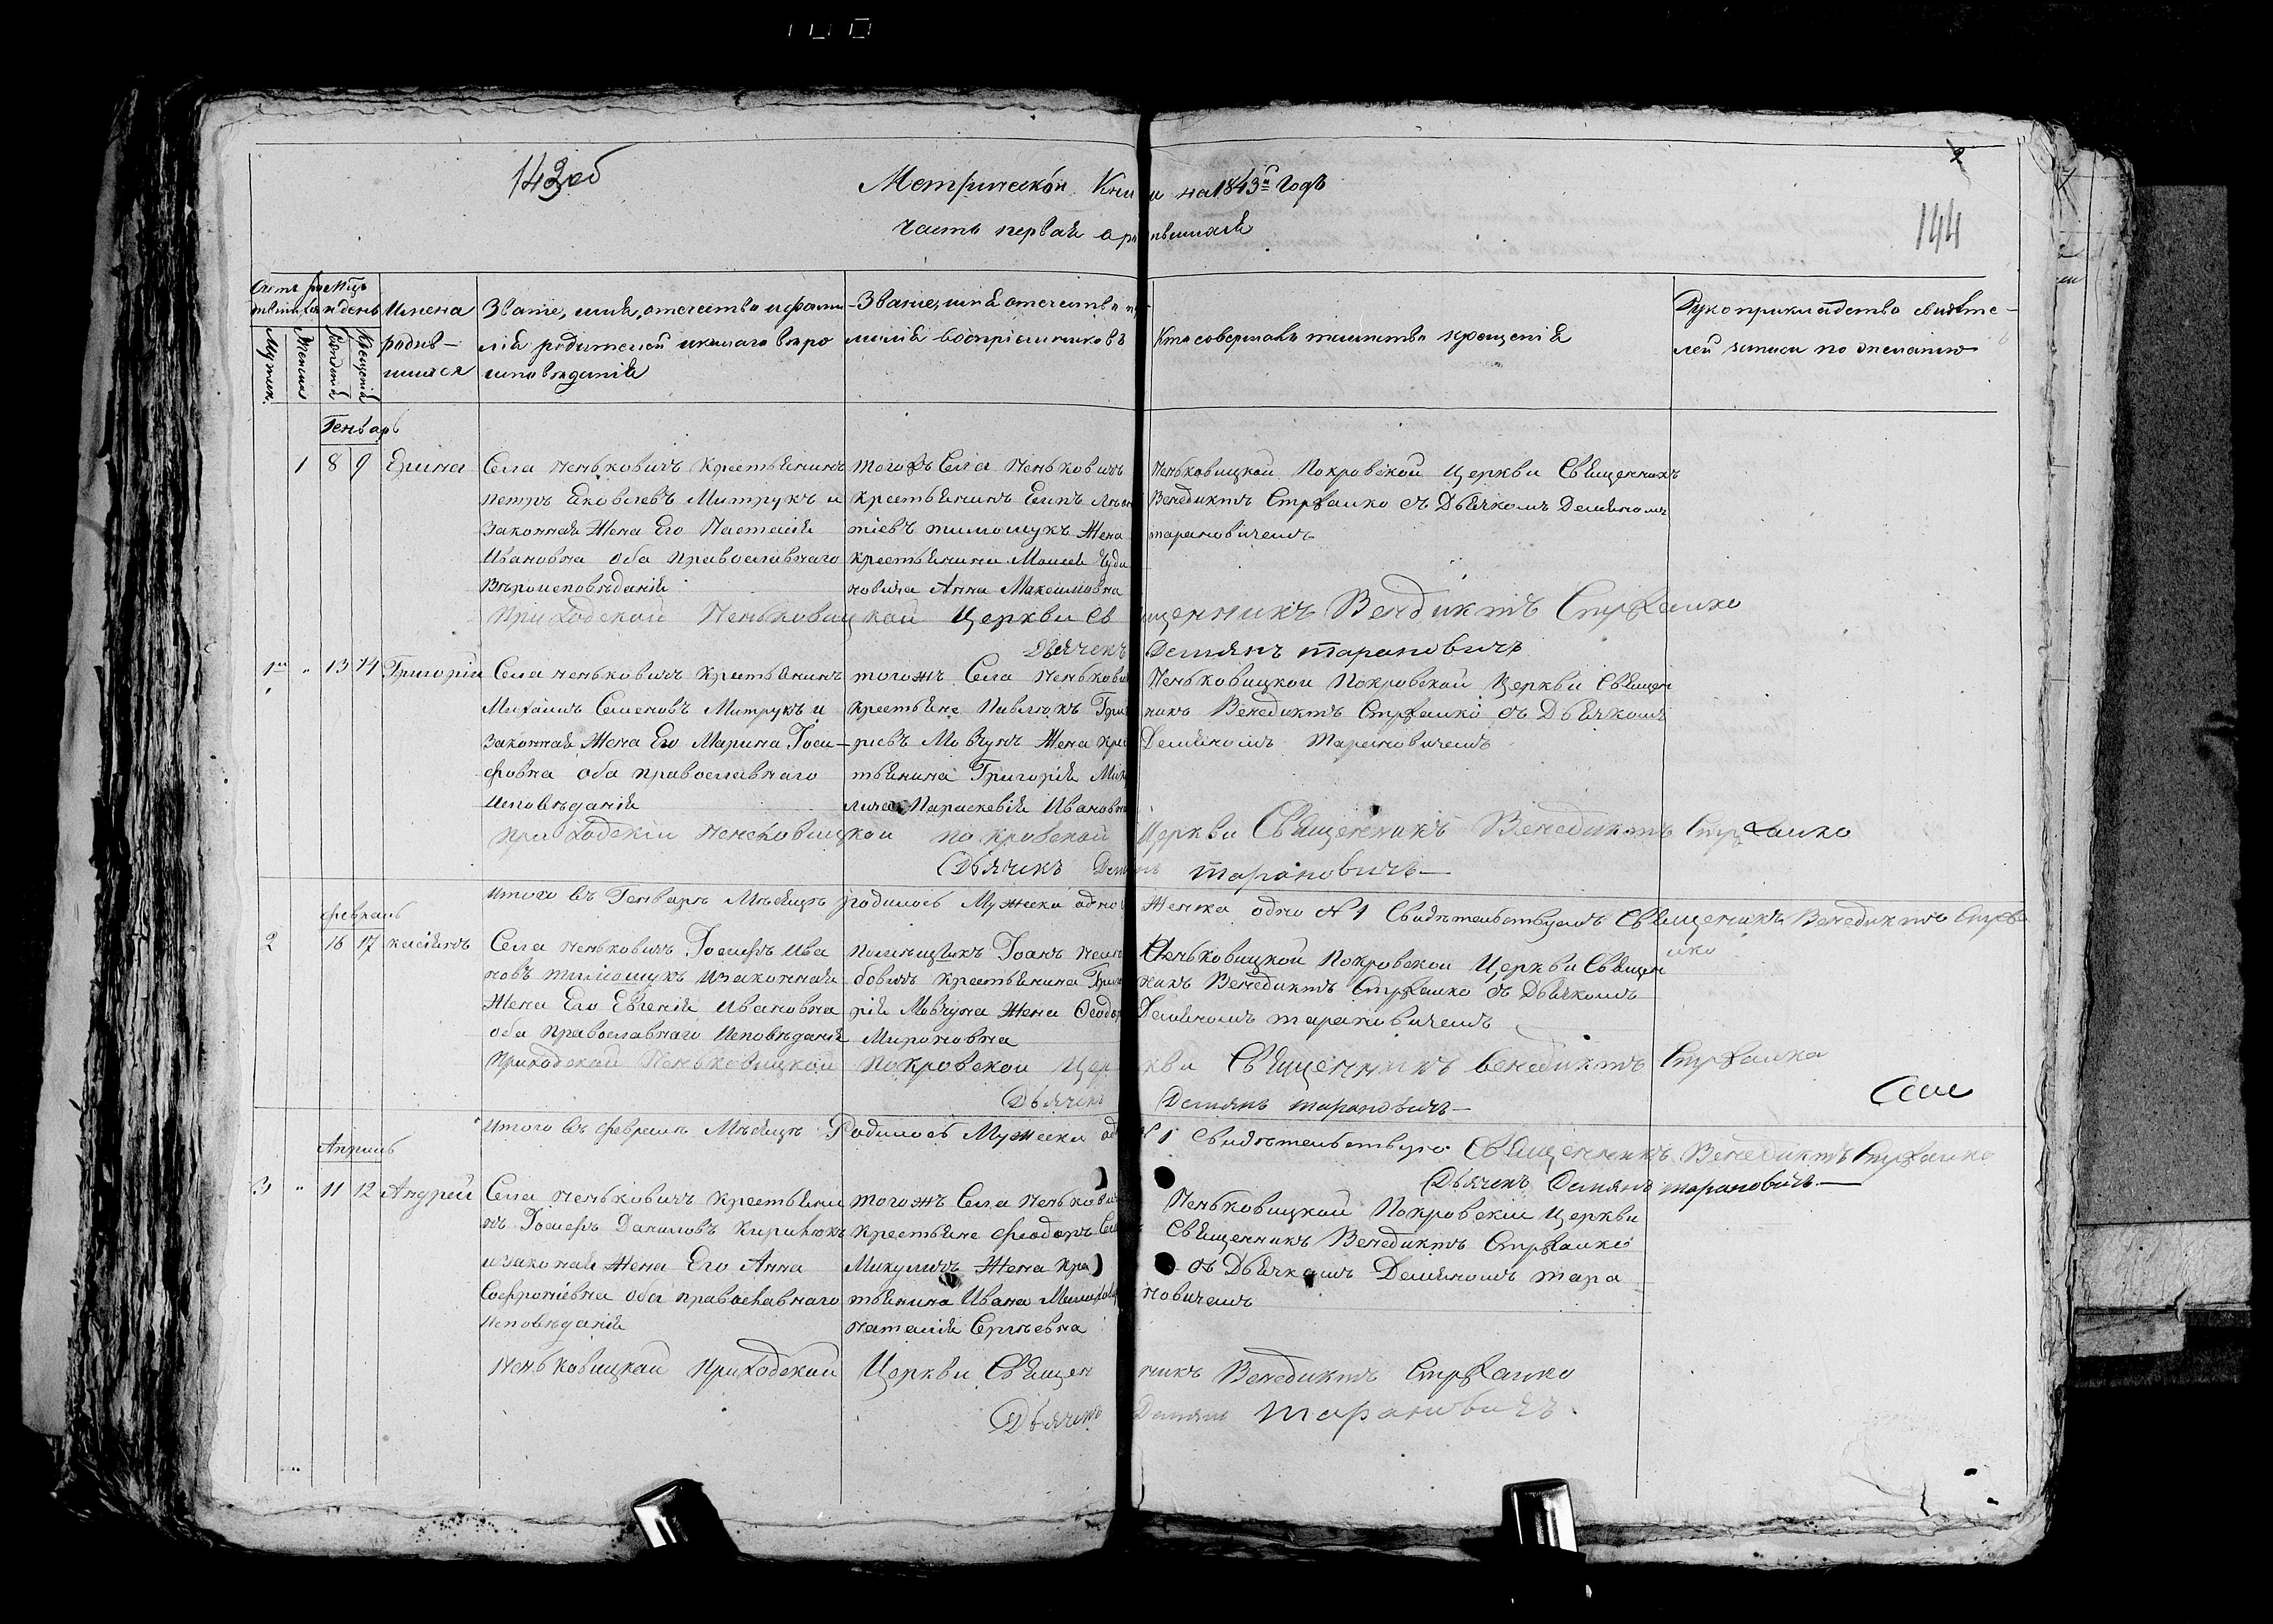 143об
Метрической Книги на 1843й Годъ
2
144
Часть первая о родившихся
Счетъ родившихся
Мужеск.
Женска
Мцъ и день
Рожденiя
Крещенiя
Имена
родив-
шихся
Званiе, имя, отечество и фами
лiя родителей и какаго веро
исповеданiя
Званiе, имя отечество и фа-
милiя воспрiемниковъ
Кто совершалъ таинство крещенiя
Рукоприкладство свидете-
лей записи по желанiю
Генварь
1 8 9 Ерина
Села Пеньковичъ Крестьянинъ
Петръ Яковлевъ Митрукъ и
Законная Жена Его Настасiя
Ивановна оба Православнаго
Вероисповеданiя
тогожъ Села Пеньковичъ
Крестьянинъ
тiевъ тимошукъ Жена
крестьянина Моисея Чуди
новича Анна Максимовна
Пеньковицкой Покровской Церкви Священникъ
Венедиктъ Стржалко съ Дьячкомъ Демяномъ
тарановичемъ
Приходской Пеньковицкой Церкви Священникъ Вендиктъ Стржалко
Дьячекъ Демянъ тарановичъ
1й " 13 14 Григорiй
Села Пеньковичъ Крестьянинъ
Михаилъ Семеновъ Митрукъ и
Законная Жена Его Марина Iоси-
фовна оба православнаго
Исповеданiя
тогожъ Села Пенькови
Крестьяне Павлюкъ Григ
риевъ Мовчунъ Жена Кре
тьянина Григорiя Мик
лича Параскевiя Ивановна
Пеньковицкой Покровской Церкви Священ
никъ Венедиктъ Стржалко съ Дьячкомъ
Демяномъ Тарановичемъ
Приходскiй Пеньковицкой Покровской Церкви Священникъ Венедиктъ Стржалко
Дьячекъ Демянъ тарановичъ
Итого въ Генваре Месяце родилось Мужеска одно Женска одно №1 Свидетельствуемъ Священикъ Венедиктъ Стржа
лко
февраль
2 16 17 касiянъ
Села Пеньковичъ Iосифъ Ива
новъ тимошукъ и законная
Жена Его Евгенiя Ивановна
оба Православнаго Исповеданiя
Помещикъ Iоанъ
бовичъ крестьянина Григо
рiя Мовчуна Жена Феодор
Мироновна
Пеньковицкой Покровской Церкви Священ
никъ Венедиктъ Стржалко съ Дьячкомъ
Демяномъ тарановичемъ
Приходской Пеньковицкой Покровской Церкви Священникъ Венедиктъ Стржалко
Дьячекъ Демянъ тарановичъ
Итого въ феврале Месяце Родилось Мужеска од №1 Свидетельствую Священникъ Венедиктъ Стржалко
Дьячекъ Демянъ тарановичъ
Апрель
3 " 11 12 Андрей
Села Пеньковичъ Крестьяни
нъ Iосифъ Даниловъ Кирилюкъ
и законая Жена Его Анна
Софронiевна оба православнаго
Исповеданiя
тогожъ Села Пенькович
Крестьяне Феодоръ Сем
Микуличъ Жена Кре
тьянина Ивана
Наталiя Сергеевна
Пеньковицкой Покровскiй Церкви
Священникъ Венедиктъ Стржалко
съ Дьячкомъ Демяномъ тара
новичемъ
Пеньковицкай Приходской Церкви Священникъ Венедиктъ Стржалко
Дьячекъ Демянъ Тарановичъ.